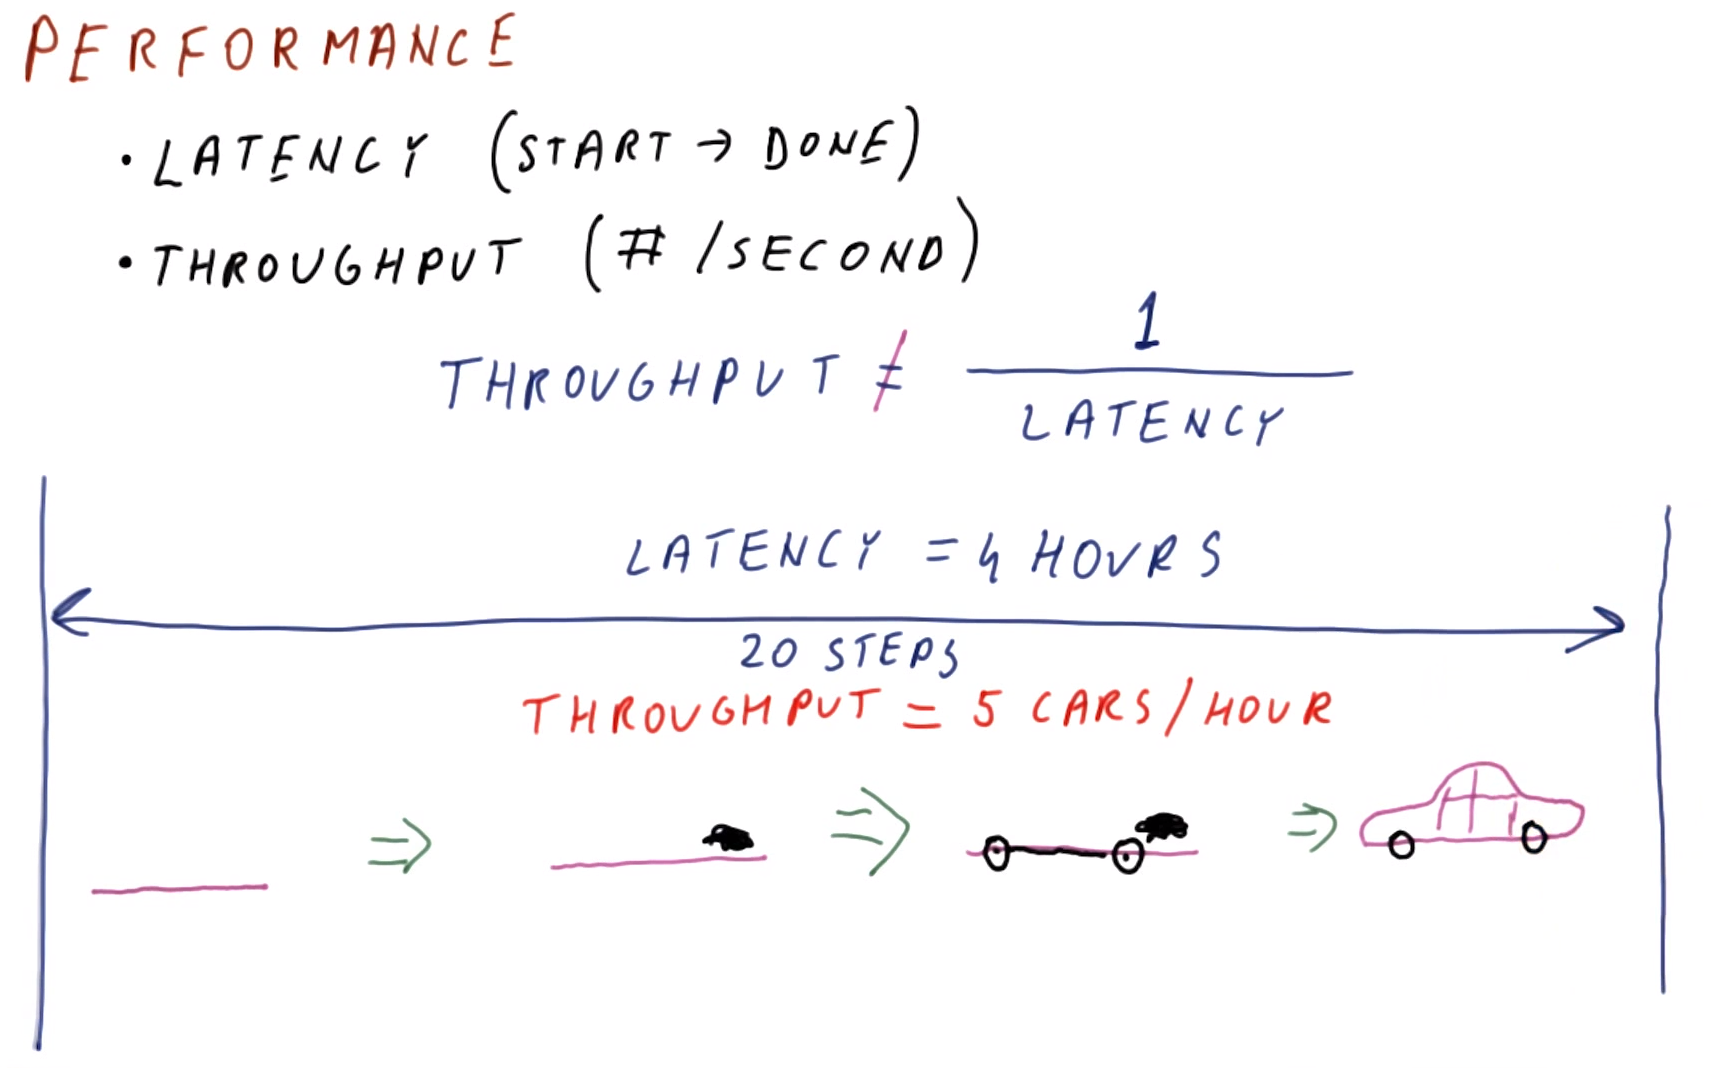 PERFORMANCE
• LATENCY (START → DONE)
• THROUGHPUT (# /SECOND)
THROUGHPUT ≠ 1 / LATENCY
LATENCY = 4 HOURS
20 STEPS
THROUGHPUT = 5 CARS/HOUR